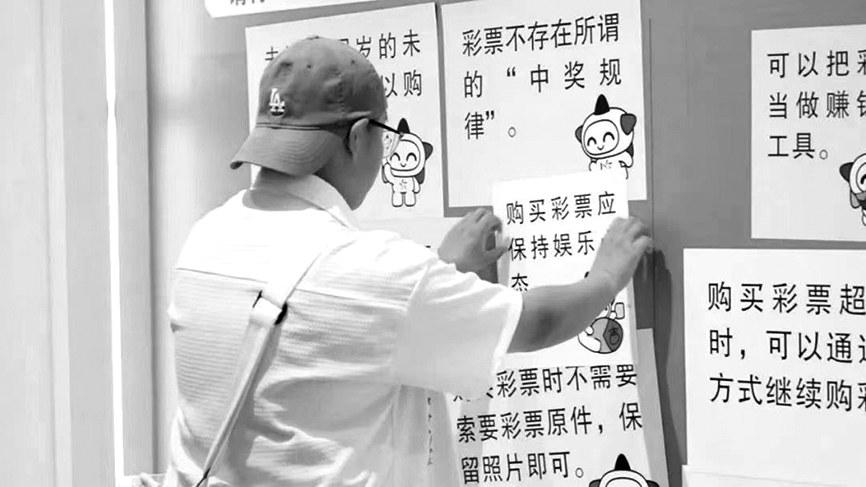 岁的未
以购
彩票不存在所谓
的“中奖规
律”。
可以把彩
当做赚钱
工具。
LA
购买彩票应
保持娱乐
态
购买彩票超
时，可以通过
方式继续购彩
购买彩票时不需要
索要彩票原件，保
留照片即可。